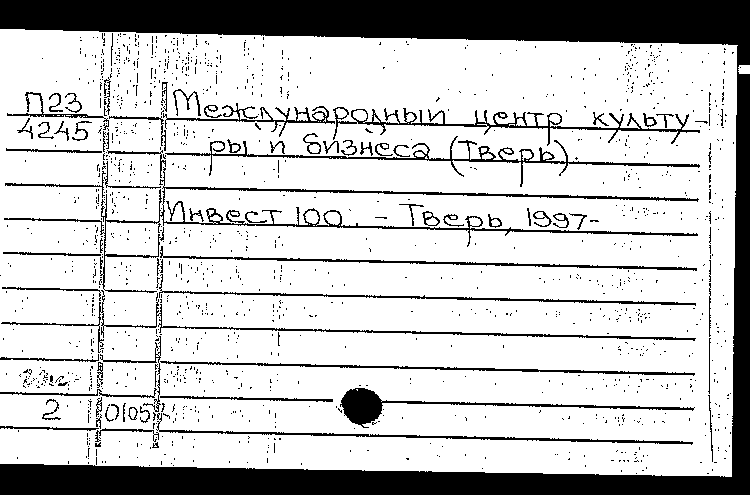 П23
4245
Международный центр культу-
ры и бизнеса (Тверь).
Инвест 100. - Тверь, 1997-
2 0105